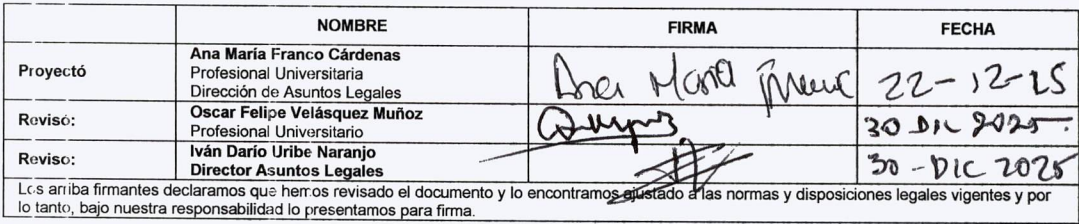 NOMBRE FIRMA FECHA
Proyectó
Ana María Franco Cárdenas
Profesional Universitaria
Dirección de Asuntos Legales
Ana Maria 22-12-25
Revisó:
Oscar Felipe Velásquez Muñoz
Profesional Universitario
30 DIC 2025.
Reviso:
Iván Darío Uribe Naranjo
Director Asuntos Legales
30-DIC 2025
Los arriba firmantes declaramos que hemos revisado el documento y lo encontramos ajustado a las normas y disposiciones legales vigentes y por
lo tanto, bajo nuestra responsabilidad lo presentamos para firma.